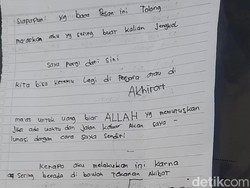 Siapapun yg baca Pesan ini Tolong
maafkan aku yg sering buat kalian Jengkel
saya pergi dari sini
kita bisa ketemu lagi di Penjara atau di
Akhirat
untuk yang biar ALLAH yg memutuskan
Jika ada waktu dan Jalan keluar Akan saya
lunasi dengan cara saya sendiri
Kenapa aku melakukan ini karna
Sering berada di bawah Tekanan Akibat
detikcom